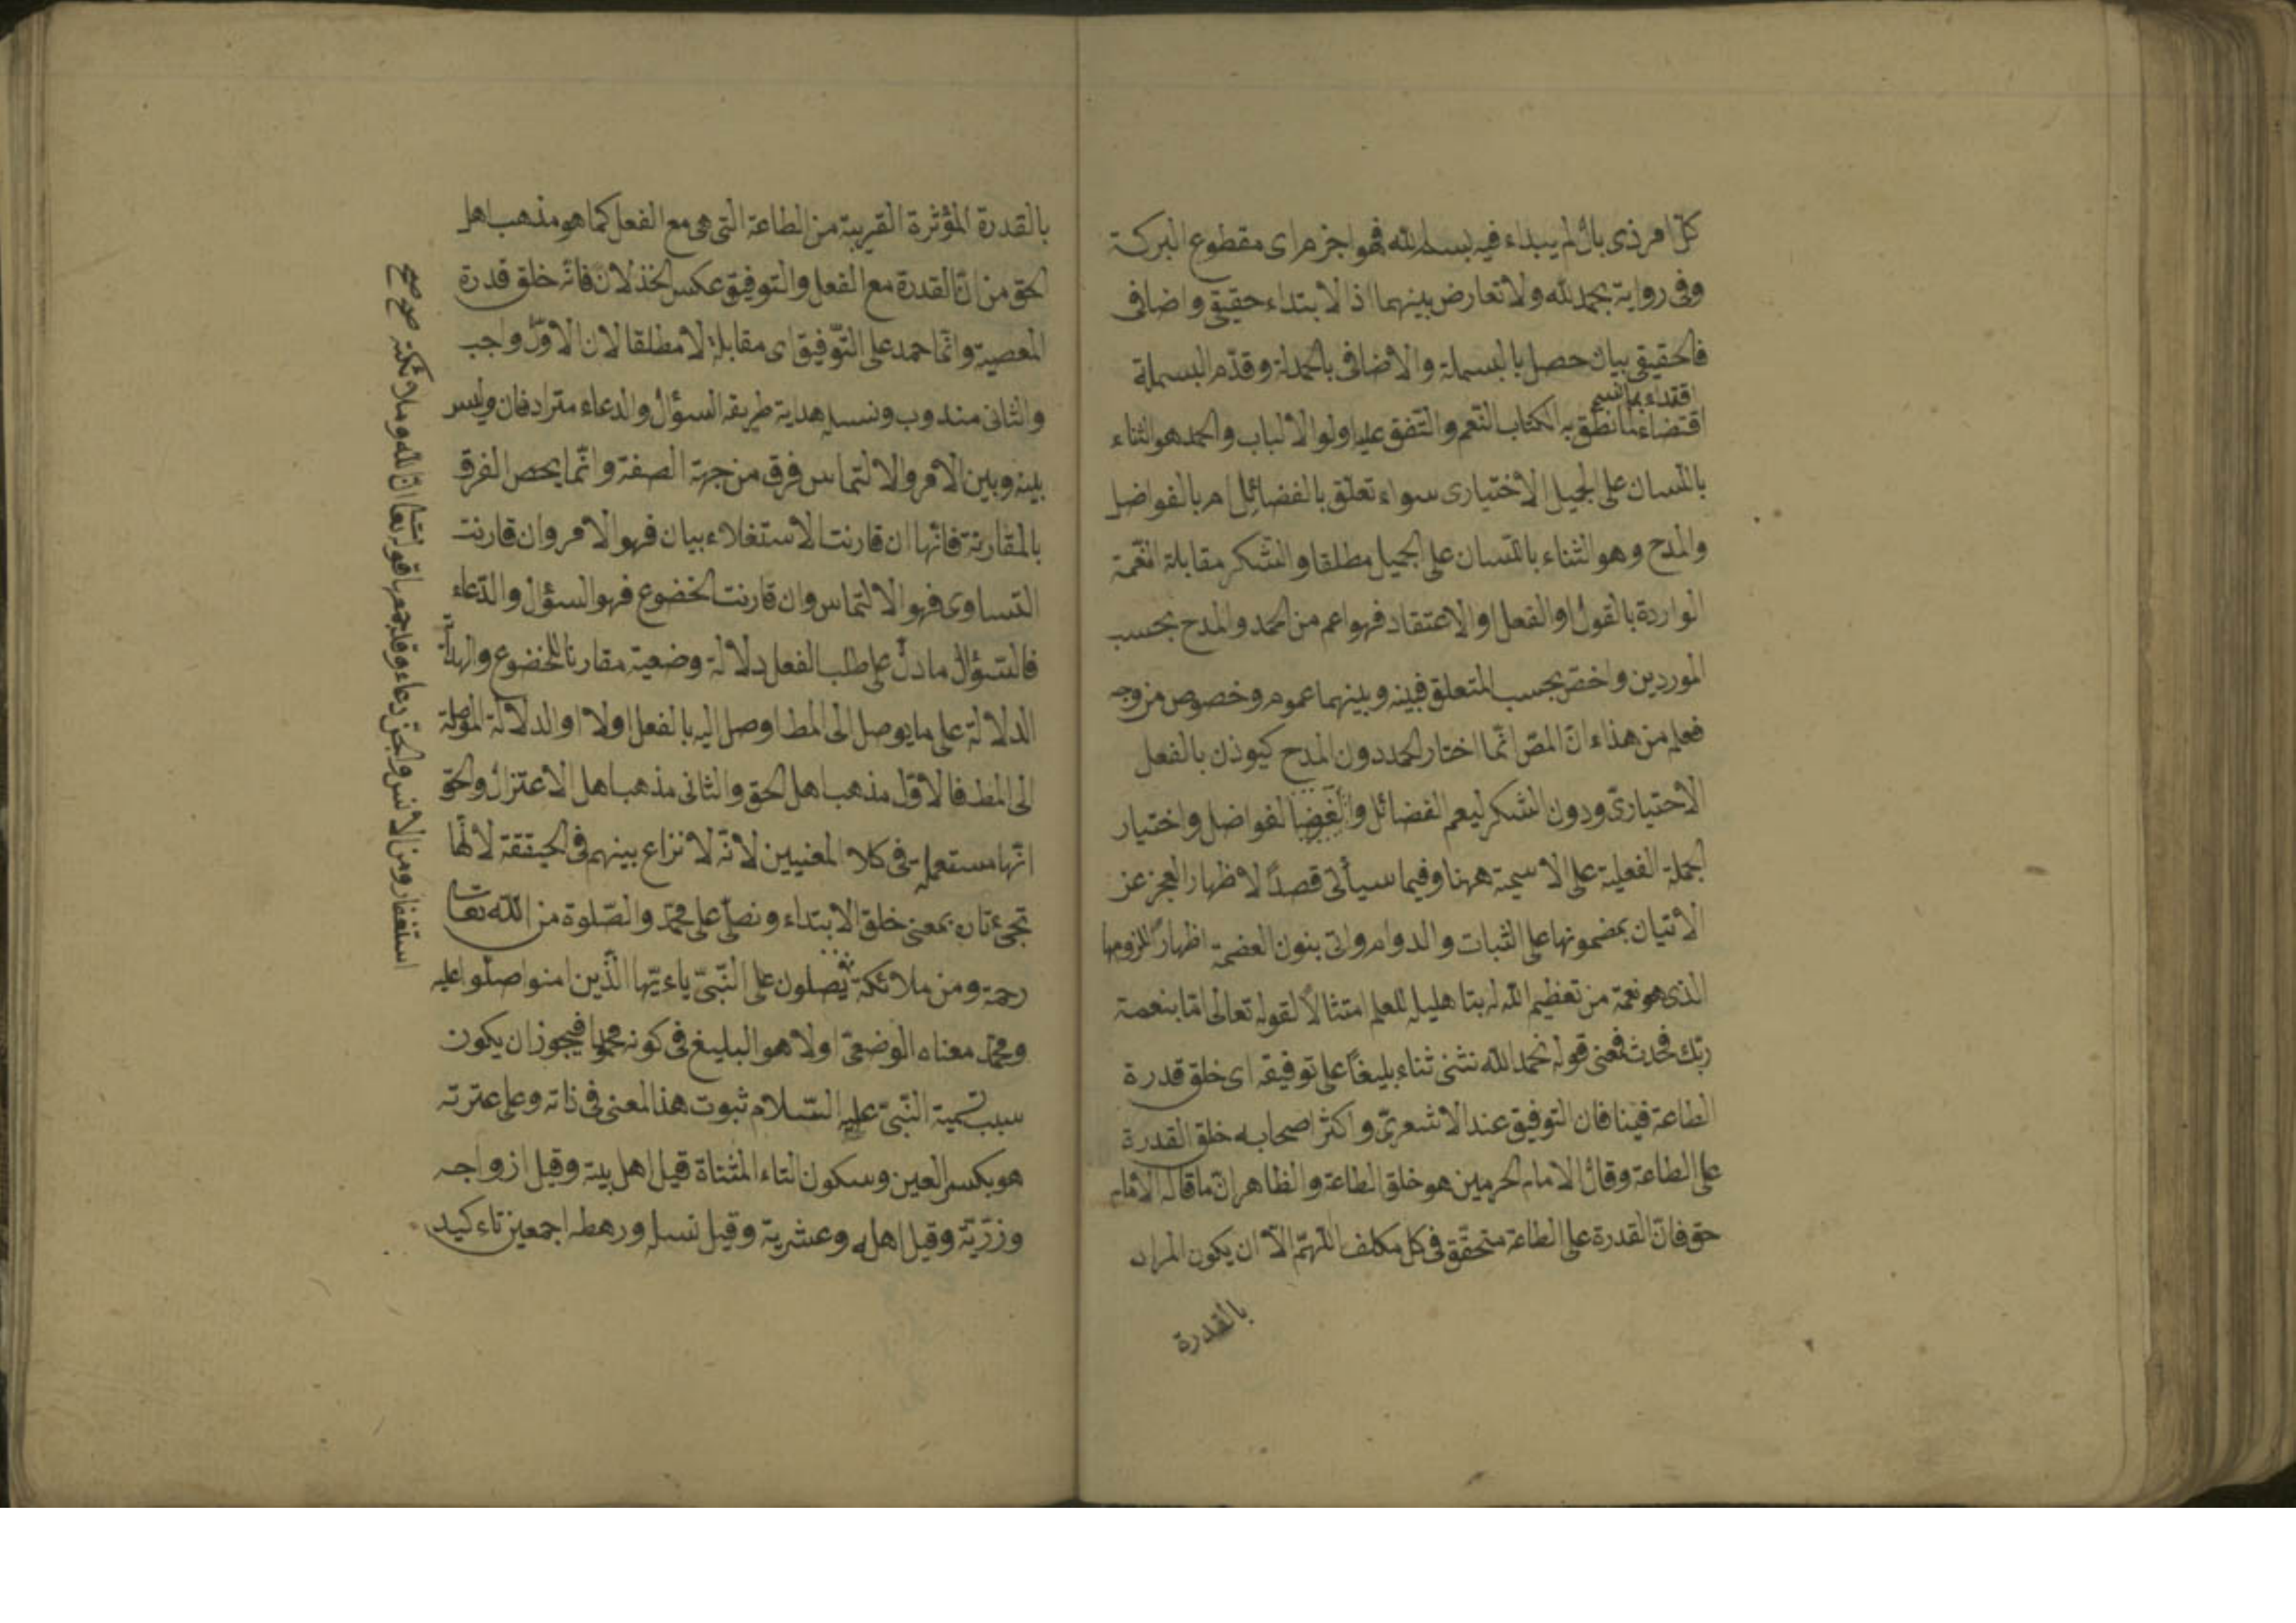 كلّ امر ذى بال لم يبداء فيه ببسم الله فهو اجزم اى مقطوع البركة
وفى رواية بحمد لله ولا تعارض بينهما اذ الابتداء حقيقى واضافى
فالحقيقى بيان حصل بالبسملة والاضافى بالحمدلة وقدّم البسملة
اقتداء بما
اقتضاء لما نطق به الكتاب والتّفق عليه اولوا الالباب والحمد هو الثناء
باللّسان على الجميل الاختيارى سواء تعلّق بالفضائل ام بالفواضل
والمدح وهو الثناء باللّسان على الجميل مطلقا والشّكر مقابلة النّعمة
الواردة بالقول او الفعل او الاعتقاد فهو اعم من الحمد والمدح بحسب
الموردين واخصّ بحسب المتعلق فبينه وبينهما عموم وخصوص من وجه
فعلم من هذاء انّ المصّ انّما اختار الحمد دون المدح كيوذن بالفعل
الاختيارىّ ودون الشكر ليعم الفضائل والفواضل واختيار
الجملة الفعلية على الاسمية ههنا وفيما سيأتى قصدًا لاظهار العجز عن
الاتيان بمضمونها على الثبات والدوام واتى بنون العضمة اظهارًا للزومها
الذى هو نعمة من تعظيم الله له بتاهليله للعلم امتثالًا لقوله تعالى امّا بنعمة
ربّك فحدث فمعنى قوله نحمد الله نثنى ثناء بليغًا على توفيقه اى خلق قدرة
الطاعة فينا فان التوفيق عند الاشعرىّ واكثر اصحابه خلق القدرة
على الطاعة وقال الامام الحرمين هو خلق الطاعة والظاهر انّ ما قاله الامام
حق فانّ القدرة على الطاعة متحقّق فى كل مكلف اللّهمّ الّا ان يكون المراد
بالقدرة
بالقدرة المؤثرة القريبة من الطاعة التى هى مع الفعل كما هو مذهب اهل
الحق من انّ القدرة مع الفعل والتوفيق عكس الخذلان فانّه خلق قدرة
المعصية وانّما حمد على التّوفيق اى مقابلة لا مطلقا لان الاوّل واجب
والثانى مندوب ونسله هداية طريقه السؤال والدعاء مترادفان وليس
بينه وبين الامر والالتماس فرق من جهة الصفة وانّما يحصل الفرق
بالمقارنة فانّها ان قارنت الاستغلاء بيان فهو الامر وان قارنت
التساوى فهو الالتماس وان قارنت الخضوع فهو السؤال والدّعاء
فالسّؤال ما دلّ على طلب الفعل دلالة وضعية مقارنا للخضوع والهداية
الدلالة على ما يوصل الى المط اوصل اليه بالفعل اولا او الدلالة الموصلة
الى المط فالاوّل مذهب اهل الحق والثانى مذهب اهل الاعتزال والحق
انّها مستعملة فى كلا المعنيين لانّه لا نزاع بينهم فى الحيققة لانّها
تجئ تارة بمعنى خلق الابتداء ونصلّى على محمّد والصّلوة من الله تعا
رحمة ومن ملائكة يصلون على النّبىّ ياءيّها الّذين امنوا صلّوا عليه
ومحمّد معناه الوضعىّ اولا هو البليغ فى كونه محمودا فيجوز ان يكون
سبب تسمية النّبىّ عليه السّلام ثبوت هذا المعنى فى ذاته وعلى عترته
هو بكسر العين وسكون التاء المثنّاة قيل اهل بيته وقيل ازواجه
وزرّيّة وقيل اهله وعشريه وقيل نسله ورهطه اجمعين تاءكيد
استغفار ومن الانس والجنّ دعاء وقد جمعها قوله تعا انّ الله وملائكته صح صح